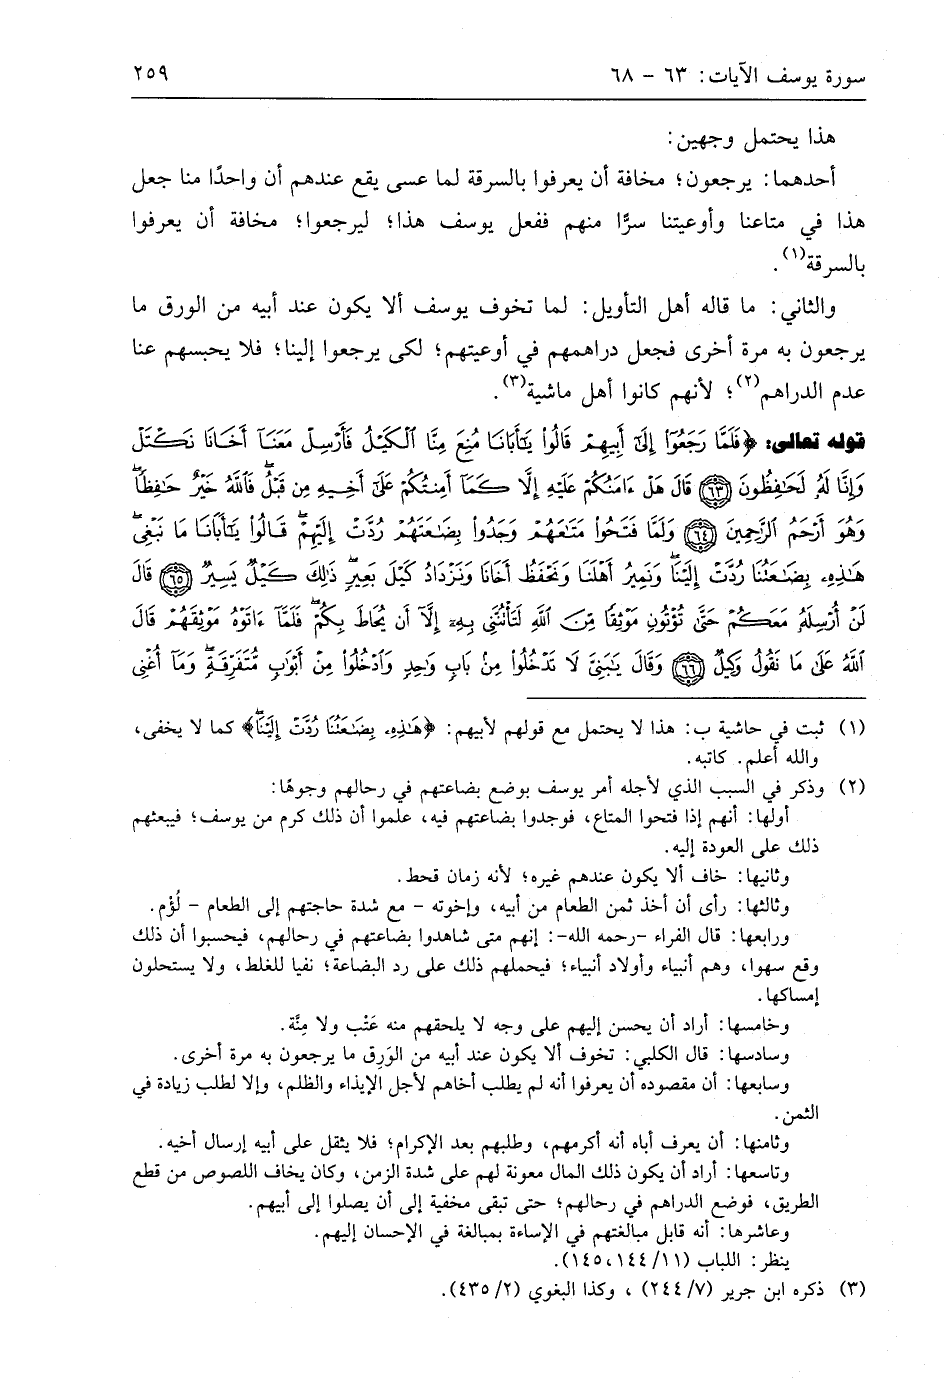 سورة يوسف الآيات: ٦٣ - ٦٨ ٢٥٩
هذا يحتمل وجهين:
أحدهما: يرجعون؛ مخافة أن يعرفوا بالسرقة لما عسى يقع عندهم أن واحدًا منا جعل
هذا في متاعنا وأوعيتنا سرًّا منهم ففعل يوسف هذا؛ ليرجعوا؛ مخافة أن يعرفوا
بالسرقة(١).
والثاني: ما قاله أهل التأويل: لما تخوف يوسف ألا يكون عند أبيه من الورق ما
يرجعون به مرة أخرى فجعل دراهمهم في أوعيتهم؛ لكى يرجعوا إلينا؛ فلا يحبسهم عنا
عدم الدراهم(٢)؛ لأنهم كانوا أهل ماشية(٣).
قوله تعالى: ﴿فَلَمَّا رَجَعُوٓا۟ إِلَىٰٓ أَبِيهِمْ قَالُوا۟ يَٰٓأَبَانَا مُنِعَ مِنَّا ٱلْكَيْلُ فَأَرْسِلْ مَعَنَآ أَخَانَا نَكْتَلْ
وَإِنَّا لَهُۥ لَحَٰفِظُونَ ﴿٦٣﴾ قَالَ هَلْ ءَامَنُكُمْ عَلَيْهِ إِلَّا كَمَآ أَمِنتُكُمْ عَلَىٰٓ أَخِيهِ مِن قَبْلُ ۖ فَٱللَّهُ خَيْرٌ حَٰفِظًا ۖ
وَهُوَ أَرْحَمُ ٱلرَّٰحِمِينَ ﴿٦٤﴾ وَلَمَّا فَتَحُوا۟ مَتَٰعَهُمْ وَجَدُوا۟ بِضَٰعَتَهُمْ رُدَّتْ إِلَيْهِمْ ۖ قَالُوا۟ يَٰٓأَبَانَا مَا نَبْغِى ۖ
هَٰذِهِۦ بِضَٰعَتُنَا رُدَّتْ إِلَيْنَا ۖ وَنَمِيرُ أَهْلَنَا وَنَحْفَظُ أَخَانَا وَنَزْدَادُ كَيْلَ بَعِيرٍ ۖ ذَٰلِكَ كَيْلٌ يَسِيرٌ ﴿٦٥﴾ قَالَ
لَنْ أُرْسِلَهُۥ مَعَكُمْ حَتَّىٰ تُؤْتُونِ مَوْثِقًا مِّنَ ٱللَّهِ لَتَأْتُنَّنِى بِهِۦٓ إِلَّآ أَن يُحَاطَ بِكُمْ ۖ فَلَمَّآ ءَاتَوْهُ مَوْثِقَهُمْ قَالَ
ٱللَّهُ عَلَىٰ مَا نَقُولُ وَكِيلٌ ﴿٦٦﴾ وَقَالَ يَٰبَنِىَّ لَا تَدْخُلُوا۟ مِنۢ بَابٍ وَٰحِدٍ وَٱدْخُلُوا۟ مِنْ أَبْوَٰبٍ مُّتَفَرِّقَةٍ ۖ وَمَآ أُغْنِى
(١) ثبت في حاشية ب: هذا لا يحتمل مع قولهم لأبيهم: ﴿هَٰذِهِۦ بِضَٰعَتُنَا رُدَّتْ إِلَيْنَا ۖ﴾ كما لا يخفى،
والله أعلم. كاتبه.
(٢) وذكر في السبب الذي لأجله أمر يوسف بوضع بضاعتهم في رحالهم وجوهًا:
أولها: أنهم إذا فتحوا المتاع، فوجدوا بضاعتهم فيه، علموا أن ذلك كرم من يوسف؛ فيبعثهم
ذلك على العودة إليه.
وثانيها: خاف ألا يكون عندهم غيره؛ لأنه زمان قحط.
وثالثها: رأى أن أخذ ثمن الطعام من أبيه، وإخوته - مع شدة حاجتهم إلى الطعام - لُؤْم.
ورابعها: قال الفراء -رحمه الله-: إنهم متى شاهدوا بضاعتهم في رحالهم، فيحسبوا أن ذلك
وقع سهوا، وهم أنبياء وأولاد أنبياء؛ فيحملهم ذلك على رد البضاعة؛ نفيا للغلط، ولا يستحلون
إمساكها.
وخامسها: أراد أن يحسن إليهم على وجه لا يلحقهم منه عَتْب ولا مِنَّة.
وسادسها: قال الكلبي: تخوف ألا يكون عند أبيه من الوَرِق ما يرجعون به مرة أخرى.
وسابعها: أن مقصوده أن يعرفوا أنه لم يطلب أخاهم لأجل الإيذاء والظلم، وإلا لطلب زيادة في
الثمن.
وثامنها: أن يعرف أباه أنه أكرمهم، وطلبهم بعد الإكرام؛ فلا يثقل على أبيه إرسال أخيه.
وتاسعها: أراد أن يكون ذلك المال معونة لهم على شدة الزمن، وكان يخاف اللصوص من قطع
الطريق، فوضع الدراهم في رحالهم؛ حتى تبقى مخفية إلى أن يصلوا إلى أبيهم.
وعاشرها: أنه قابل مبالغتهم في الإساءة بمبالغة في الإحسان إليهم.
ينظر: اللباب (١١/ ١٤٤، ١٤٥).
(٣) ذكره ابن جرير (٧/ ٢٤٤) ، وكذا البغوي (٢/ ٤٣٥).